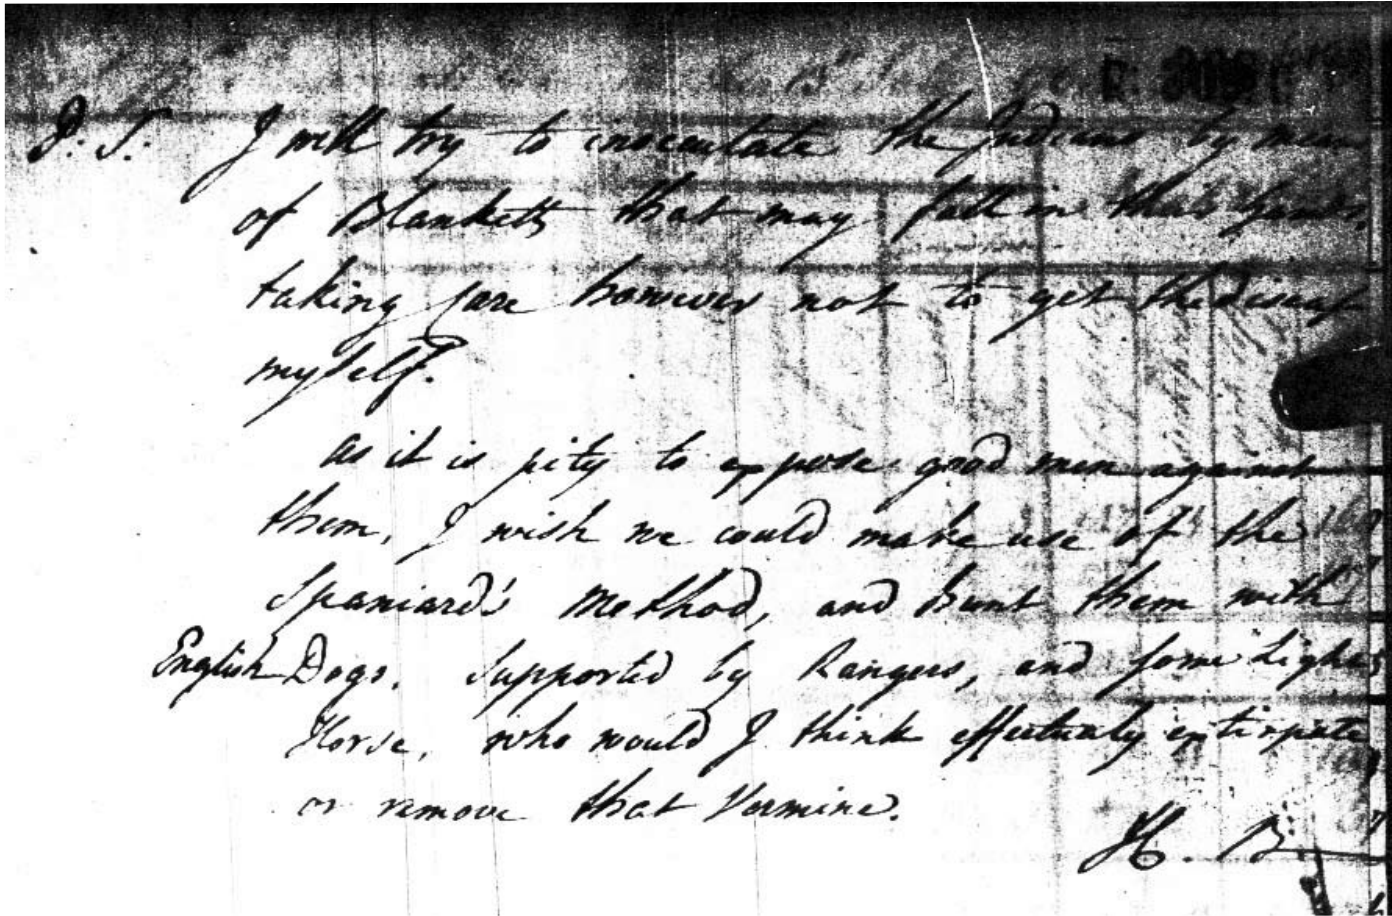 P. S. I will try to inocculate the Indians by means
of Blankets that may fall in their hands,
taking care however not to get the disease
myself.
as it is pity to oppose good men against
them, I wish we could make use of the
Spaniard's Method, and hunt them with
English Dogs, Supported by Rangers, and some Light
Horse, who would I think effectualy extirpate
or remove that Vermine.
H. B